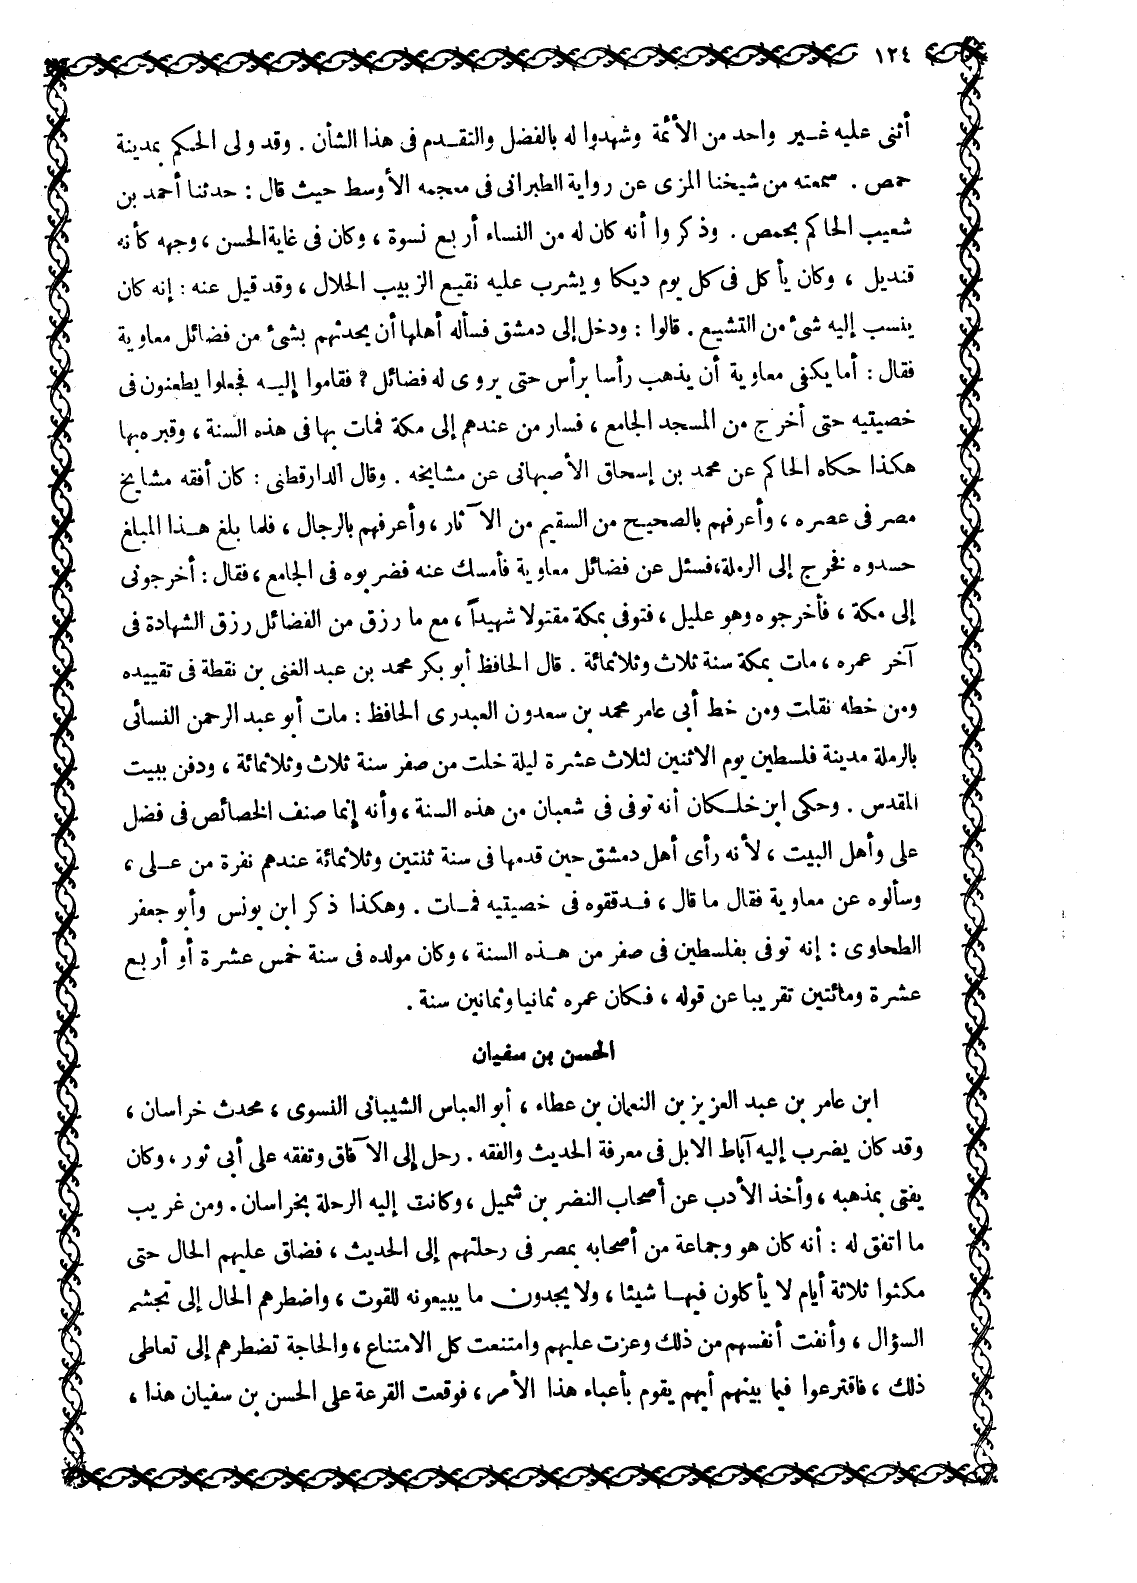 ١٢٤
أثنى عليه غير واحد من الأئمة وشهدوا له بالفضل والتقدم فى هذا الشأن . وقد ولى الحكم بمدينة
حمص . سمعته من شيخنا المزى عن رواية الطبرانى فى معجمه الأوسط حيث قال : حدثنا أحمد بن
شعيب الحاكم بحمص . وذكروا أنه كان له من النساء أربع نسوة ، وكان فى غاية الحسن ، وجهه كأنه
قنديل ، وكان يأكل فى كل يوم ديكا ويشرب عليه نقيع الزبيب الحلال ، وقد قيل عنه : إنه كان
ينسب إليه شئ من التشيع . قالوا : ودخل إلى دمشق فسأله أهلها أن يحدثهم بشئ من فضائل معاوية
فقال : أما يكفى معاوية أن يذهب رأسا برأس حتى يروى له فضائل ؟ فقاموا إليه فجعلوا يطعنون فى
خصيتيه حتى أخرج من المسجد الجامع ، فسار من عندهم إلى مكة فمات بها فى هذه السنة ، وقبره بها
هكذا حكاه الحاكم عن محمد بن إسحاق الأصبهانى عن مشايخه . وقال الدارقطنى : كان أفقه مشايخ
مصر فى عصره ، وأعرفهم بالصحيح من السقيم من الآثار ، وأعرفهم بالرجال ، فلما بلغ هذا المبلغ
حسدوه فخرج إلى الرملة ، فسئل عن فضائل معاوية فأمسك عنه فضربوه فى الجامع ، فقال : أخرجونى
إلى مكة ، فأخرجوه وهو عليل ، فتوفى بمكة مقتولا شهيداً ، مع ما رزق من الفضائل رزق الشهادة فى
آخر عمره ، مات بمكة سنة ثلاث وثلاثمائة . قال الحافظ أبو بكر محمد بن عبد الغنى بن نقطة فى تقييده
ومن خطه نقلت ومن خط أبى عامر محمد بن سعدون العبدرى الحافظ : مات أبو عبد الرحمن النسائى
بالرملة مدينة فلسطين يوم الاثنين لثلاث عشرة ليلة خلت من صفر سنة ثلاث وثلاثمائة ، ودفن ببيت
المقدس . وحكى ابن خلكان أنه توفى فى شعبان من هذه السنة ، وأنه إنما صنف الخصائص فى فضل
على وأهل البيت ، لأنه رأى أهل دمشق حين قدمها فى سنة ثنتين وثلاثمائة عندهم نفرة من على ،
وسألوه عن معاوية فقال ما قال ، فدققوه فى خصيتيه فمات . وهكذا ذكر ابن يونس وأبو جعفر
الطحاوى : إنه توفى بفلسطين فى صفر من هذه السنة ، وكان مولده فى سنة خمس عشرة أو أربع
عشرة ومائتين تقريبا عن قوله ، فكان عمره ثمانيا وثمانين سنة .
الحسن بن سفيان
ابن عامر بن عبد العزيز بن النعمان بن عطاء ، أبو العباس الشيبانى النسوى ، محدث خراسان ،
وقد كان يضرب إليه آباط الابل فى معرفة الحديث والفقه . رحل إلى الآفاق وتفقه على أبى ثور ، وكان
يفتى بمذهبه ، وأخذ الأدب عن أصحاب النضر بن شميل ، وكانت إليه الرحلة بخراسان . ومن غريب
ما اتفق له : أنه كان هو وجماعة من أصحابه بمصر فى رحلتهم إلى الحديث ، فضاق عليهم الحال حتى
مكثوا ثلاثة أيام لا يأكلون فيها شيئا ، ولا يجدون ما يبيعونه للقوت ، واضطرهم الحال إلى تجشم
السؤال ، وأنفت أنفسهم من ذلك وعزت عليهم وامتنعت كل الامتناع ، والحاجة تضطرهم إلى تعاطى
ذلك ، فاقترعوا فيما بينهم أيهم يقوم بأعباء هذا الأمر ، فوقعت القرعة على الحسن بن سفيان هذا ،